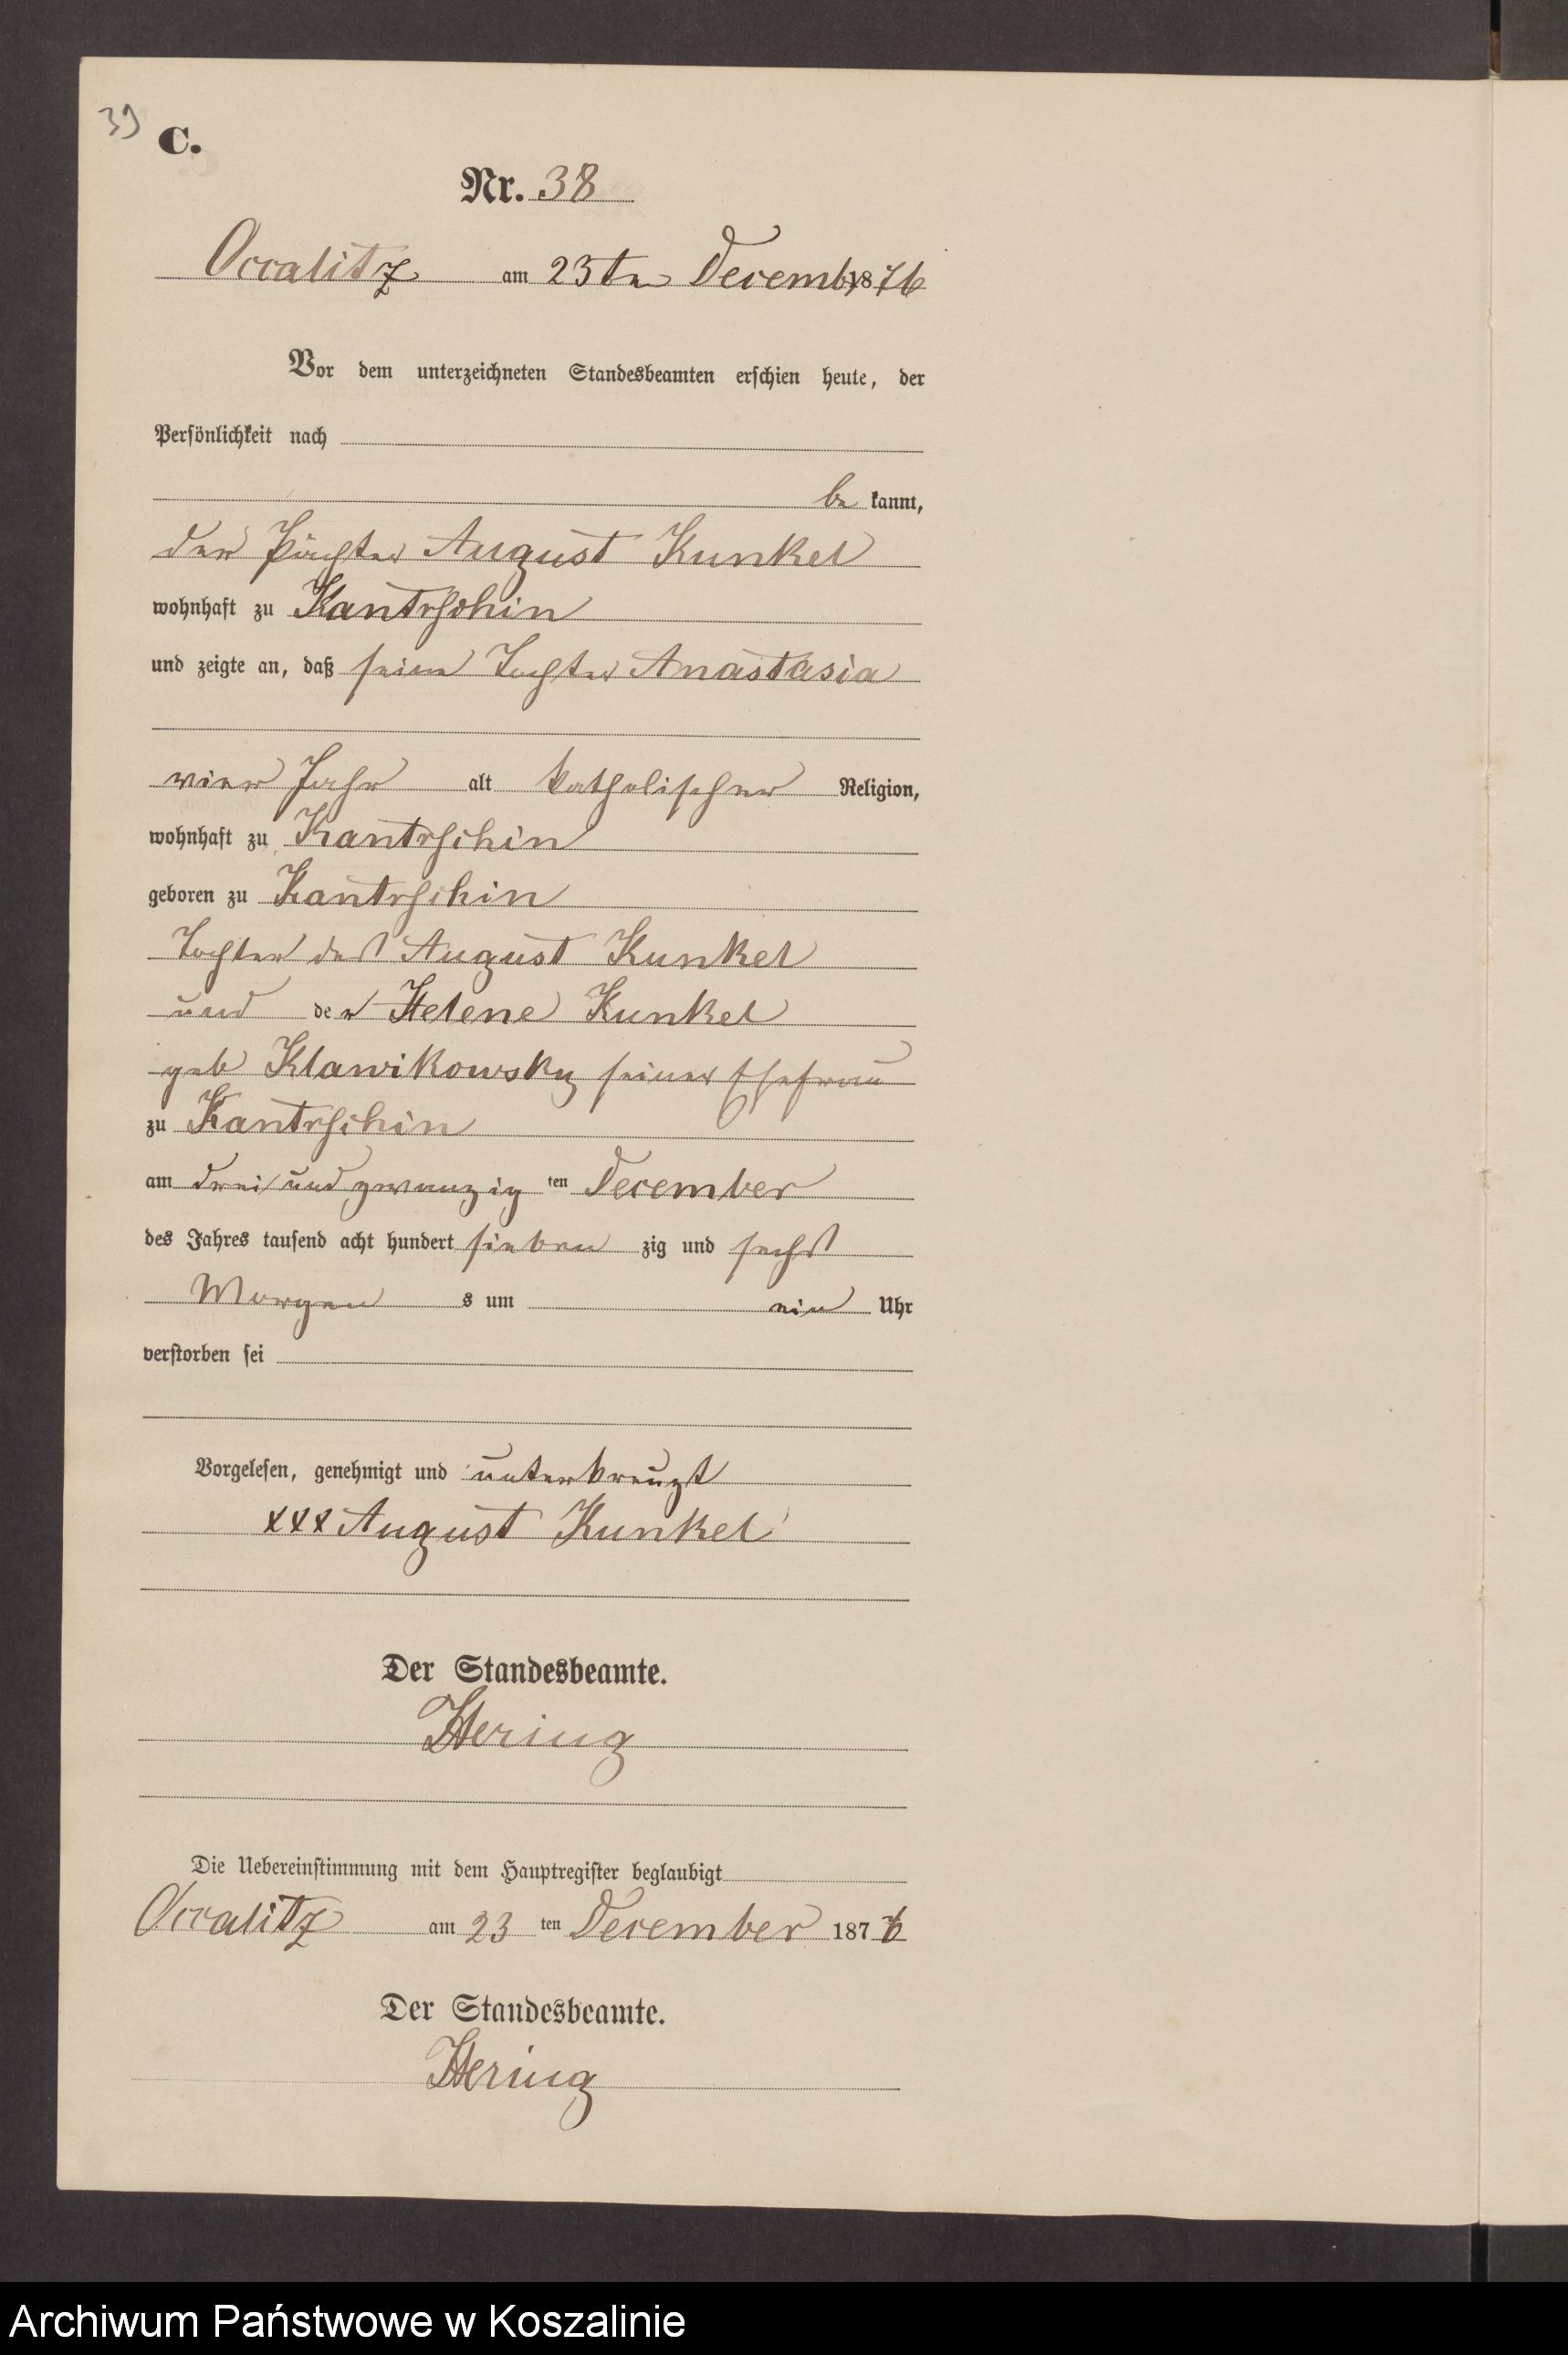 39
C.
Nr. 38
Occalitz am 23ten Decembr 1876
Vor dem unterzeichneten Standesbeamten erschien heute, der
Persönlichkeit nach
be kannt,
der Pächter August Kunkel
wohnhaft zu Kantrschin
und zeigte an, daß seine Tochter Anastasia
vier Jahr alt katholischer Religion,
wohnhaft zu Kantrschin
geboren zu Kantrschin
Tochter des August Kunkel
und der Helene Kunkel
geb Klawikowsky seiner Ehefrau
zu Kantrschin
am drei und zwanzig ten December
des Jahres tausend acht hundert sieben zig und sechs
Morgen s um ein Uhr
verstorben sei
Vorgelesen, genehmigt und unterkreuzt
xxx August Kunkel
Der Standesbeamte.
Hering
Die Uebereinstimmung mit dem Hauptregister beglaubigt
Occalitz am 23 ten December 1876
Der Standesbeamte.
Hering
Archiwum Państwowe w Koszalinie